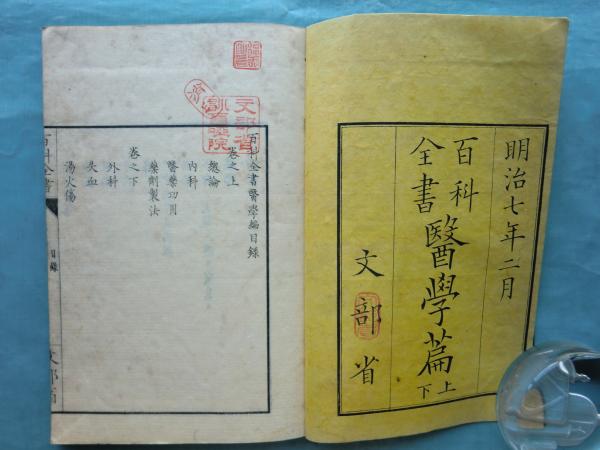 明治七年二月
百科全書 醫學篇 上下
文部省
百科全書醫學編目録
卷之上
總論
内科
醫藥功用
藥劑製法
卷之下
外科
失血
湯火傷
百科全書
目録
文部省